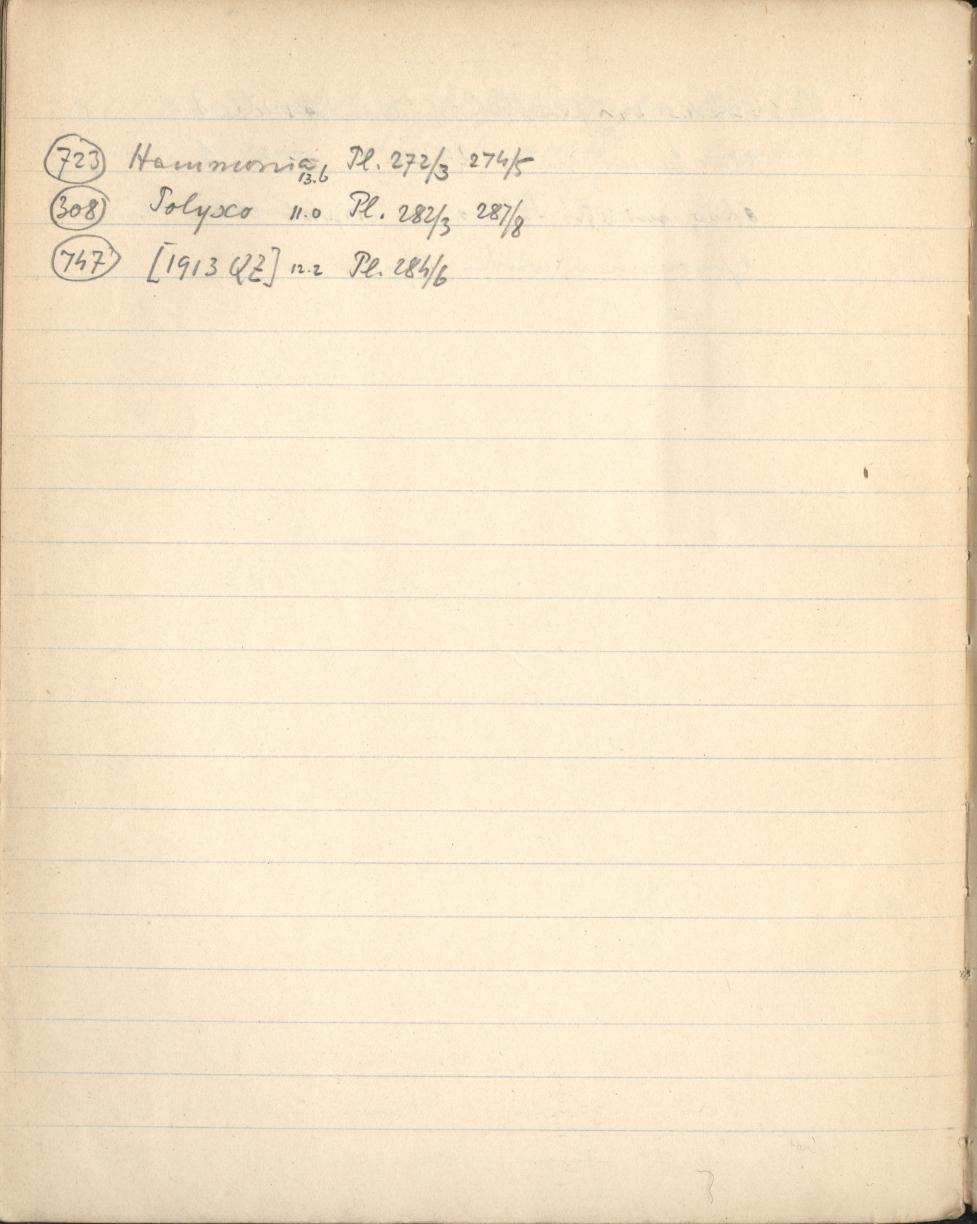 723 Hammonia 13.6 Pl. 272/3 274/5
308 Polyxo 11.0 Pl. 282/3 287/8
747 [1913 QZ] 12.2 Pl. 284/6